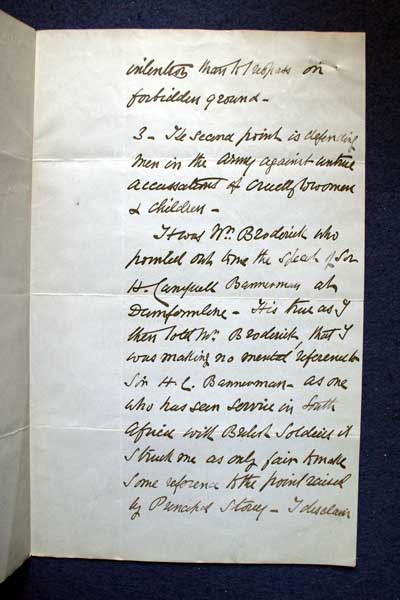 intention than to trespass on
forbidden ground -
3 - The second point is defending
men in the army against untrue
accussations of cruelty to women
& children -
It was Mr. Broderick who
pointed out to me the speech of Sir
H. Campbell Bannerman at
Dunfermline - It is true as I
then told Mr. Broderick, that I
was making no mental reference to
Sir H. C. Bannerman - as one
who has seen service in South
Africa with British Soldiers it
struck me as only fair to make
some reference to the point raised
by Principal Storey - I disclaim